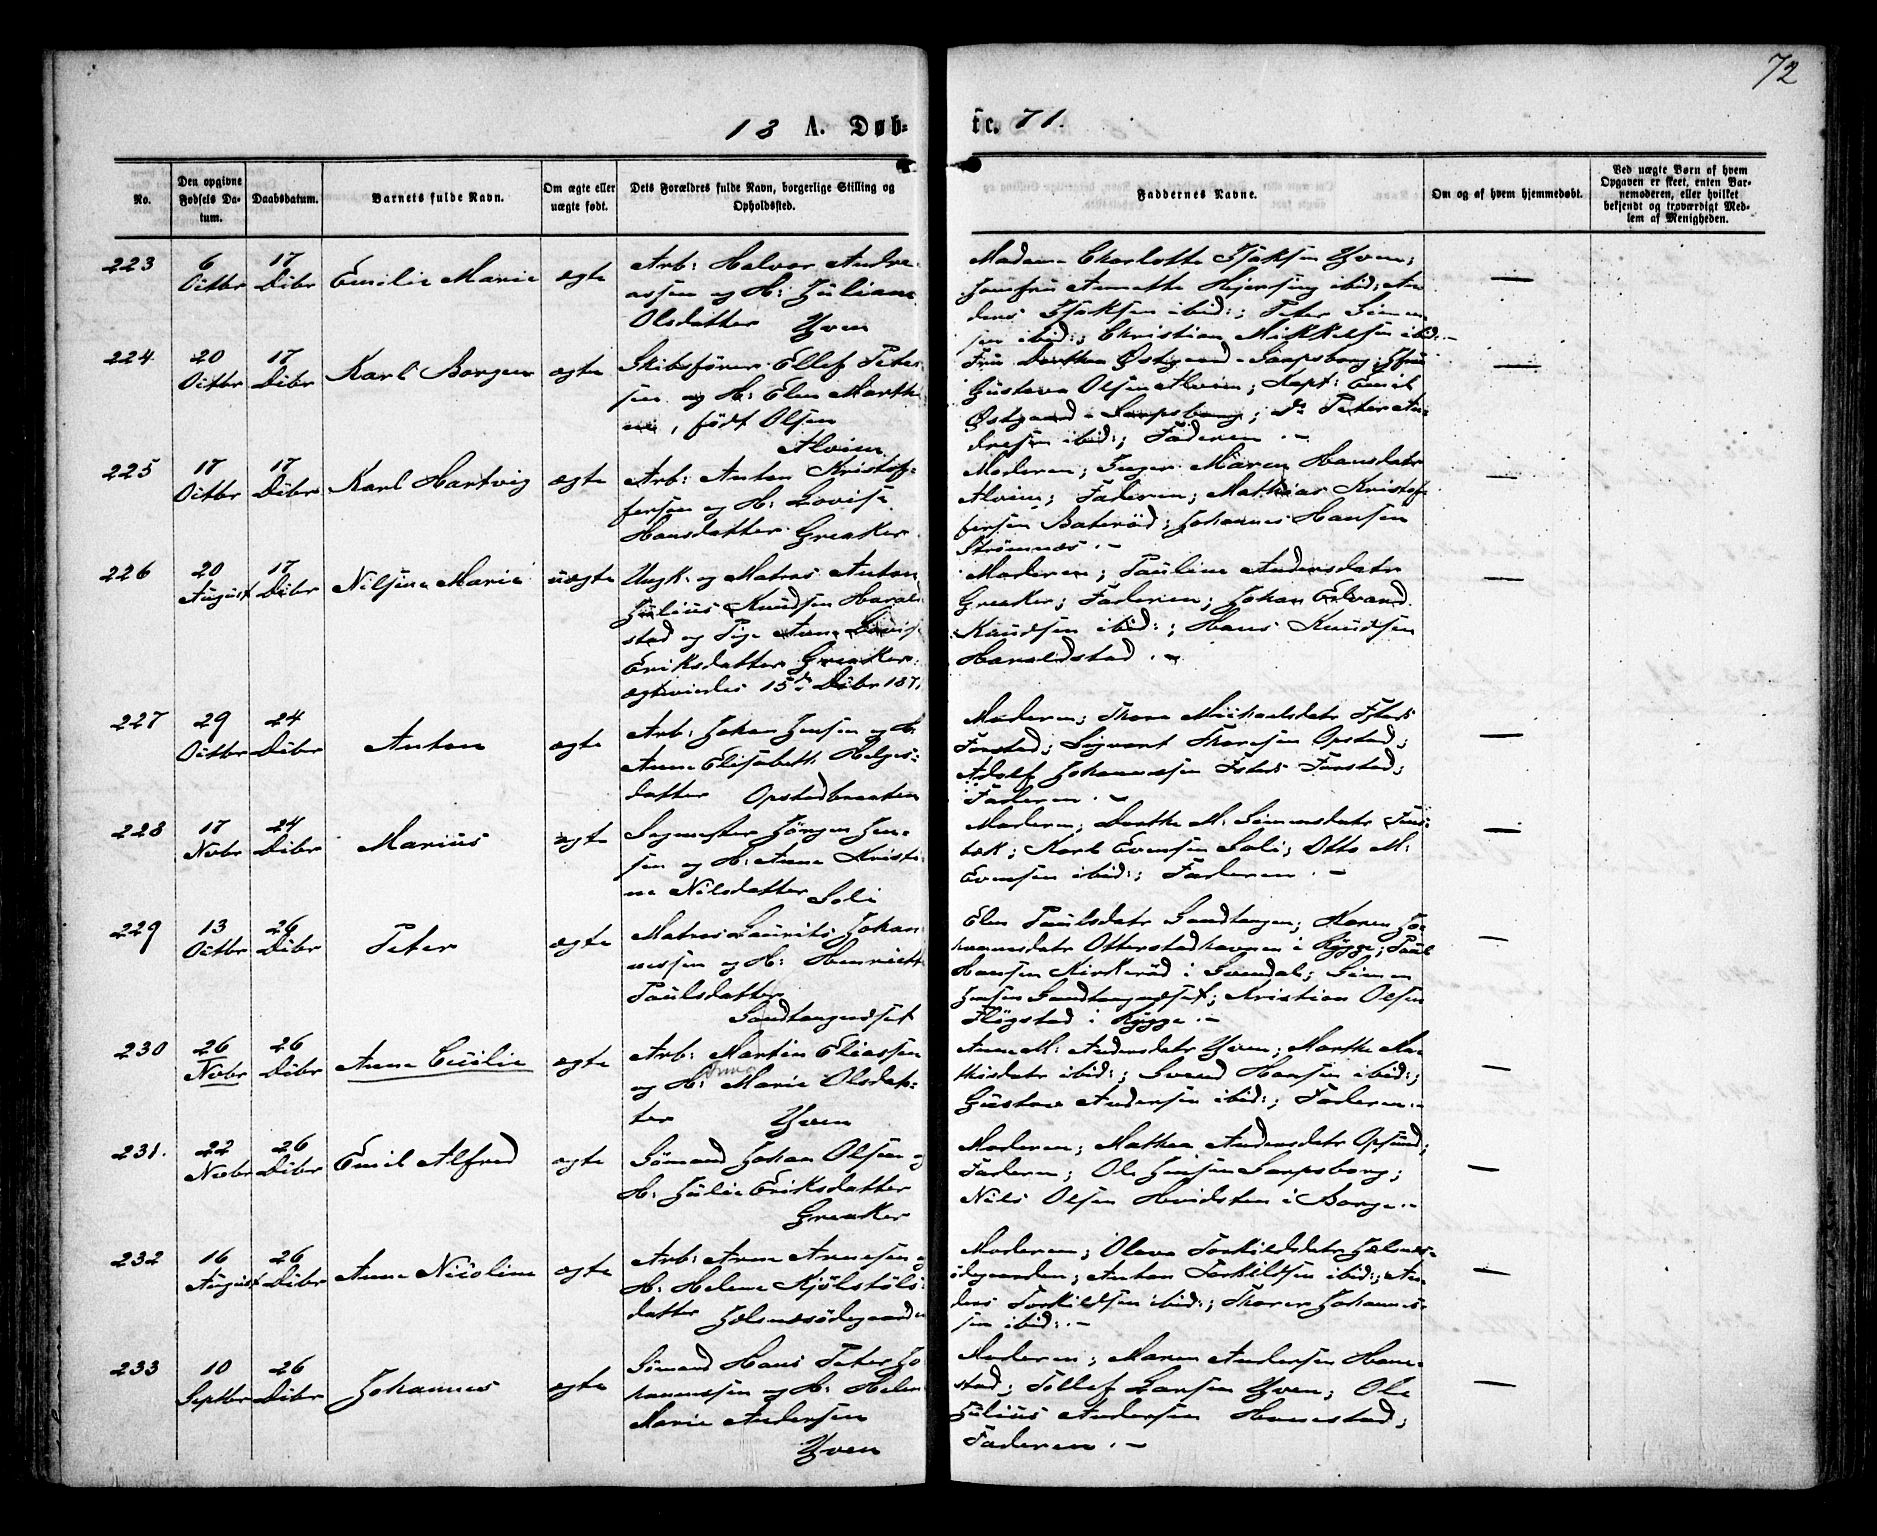 72
18 A. Døb-
te. 71.
No.
Den opgivne Fødsels Da-tum.
Daabsdatum.
Barnets fulde Navn.
Om ægte eller uægte født.
Dets Forældres fulde Navn, borgerlige Stilling og Opholdssted.
Faddernes Navne.
Om og af hvem hjemmedøbt.
Ved uægte Børn af hvem Opgaven er skeet, enten Bar-nemoderen, eller hvilket bekjendt og troværdigt Med-lem af Menigheden.
223 6 Octbr 17 Dcbr Emilie Marie ægte
Arb: Halvor Andre-
assen og H: Juliane
Olsdatter Yven
Madame Charlotte Isaksen Yven;
Jomfru Annette Hejersing ibid; An-
ders Isaksen ibid:; Peter Simen-
sen ibid:; Christian Mikkelsen ibid: -
224 20 Octbr 17 Dcbr Karl Borgen ægte
Skibsfører Ellef Peter-
sen og H: Elen Marth
ine, født Olsen
Alvim
Fru Dorthea Østgaard Sarpsborg; Jfru
Gustava Olsen Alvim; Kapt: Emil
Østgaard Sarpsborg; Do Peter An-
dresen ibid:; Faderen. -
225 17 Octbr 17 Dcbr Karl Hartvig ægte
Arb: Anton Kristof-
fersen og H: Lovise
Hansdatter Greaker
Moderen; Inger Maren Hansdatr
Alvim; Faderen; Mathias Kristof-
fersen Baterød; Johannes Hansen
Strømnæs. -
226 20 August 17 Dcbr Nilsine Marie uægte
Ungk. og Matros Anton
Julius Knudsen Harald-
stad og Pige Anne Lovise
Eriksdatter Greaker.
ægteviedes 15de Dcbr 1871
Moderen; Pauline Andersdatr
Greaker; Faderen; Johan Edvard
Knudsen ibid:; Hans Knudsen
Haraldstad. -
227 29 Octbr 24 Dcbr Anton ægte
Arb: Johan Jensen og H:
Anne Elisabeth Helges-
datter Opstadbraaten
Moderen; Thora Michaelsdatr
Torstad; Sigvart Thoresen Opstad;
Adolf Johannesen
Faderen. -
228 17 Nvbr 24 Dcbr Marius ægte
Sagmester Jørgen Jen-
sen og H: Anne Kristi-
ne Nilsdatter Soli
Moderen; Dorthe M: Simensdatr Tues-
bæk; Karl Evensen Soli; Otto M:
Evensen ibid:; Faderen. -
229 13 Octbr 26 Dcbr Peter ægte
Matros Laurits Johan
nessen og H: Henriette
Paulsdatter
Sandtangnæset
Elen Paulsdatr Sandtangen; Karen Jo-
hannesdatr Otterstadhavnen i Rygge; Paul
Hansen Kirkerød i Svendal; Simen
Jensen Sandtangnæset; Kristian Olsen
Fløgstad i Rygge. -
230 26 Nvbr 26 Dcbr Anne Cecilie ægte
Arb: Martin Eliassen
og H: Anne Marie Olsdat-
ter Yven
Anne M: Andersdatr Yven; Marthe Ma-
thisdatr ibid:; Svend Hansen ibid:;
Gustav Andersen ibid:; Faderen. -
231. 22 Nvbr 26 Dcbr Emil Alfred ægte
Sømand Johan Olsen og
H: Julie Eriksdatter
Greaker
Moderen; Mathea Andersdatr Opsund;
Faderen; Ole Jensen Sarpsborg;
Nils Olsen Hvidsten i Borge. -
232 16 August 26 Dcbr Anne Nicoline ægte
Arb: Arne Arnesen og
H: Helene Kjølstøls-
datter Jelsnæsødegaarden
Moderen; Oleva Torkildsdatr Jelsnæs-
ødegaarden; Anton Torkildsen ibid:; An-
ders Torkildsen ibid:; Thorer Johannes-
sen ibid:. -
233 10 Septbr 26 Dcbr Johannes ægte
Sømand Hans Peter Jo
hannessen og H: Helene
Marie Andersen
Yven
Moderen; Maren Andersen Hane-
stad; Tollef Larsen Yven; Ole
Julius Andersen Hanestad;
Faderen. -